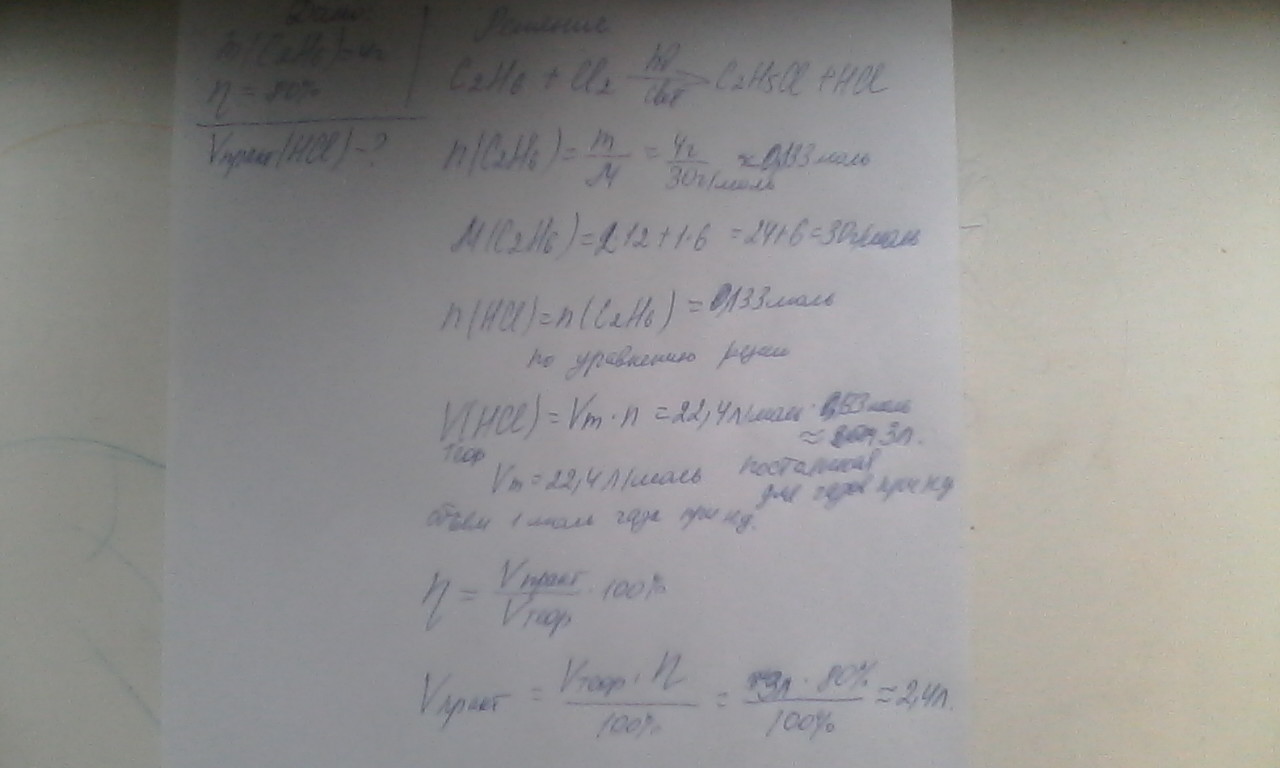 Дано:
m(C2H6)=4г
η = 80%
Vпракт(HCl)-?
Решение
C2H6 + Cl2 hν свет → C2H5Cl + HCl
n(C2H6) = m/M = 4г/30г/моль ≈ 0,133 моль
M(C2H6) = 2·12+1·6 = 24+6 = 30г/моль
n(HCl) = n(C2H6) = 0,133 моль
по уравнению
V(HCl) = Vm · n = 22,4 л/моль · 0,133 моль
теор
≈ 3л.
Vm = 22,4 л/моль постоянная
для газов при н.у
объем 1 моль газа при н.у.
η = Vпракт/Vтеор · 100%
Vпракт = Vтеор · η/100% = 3л · 80%/100% ≈ 2,4л.